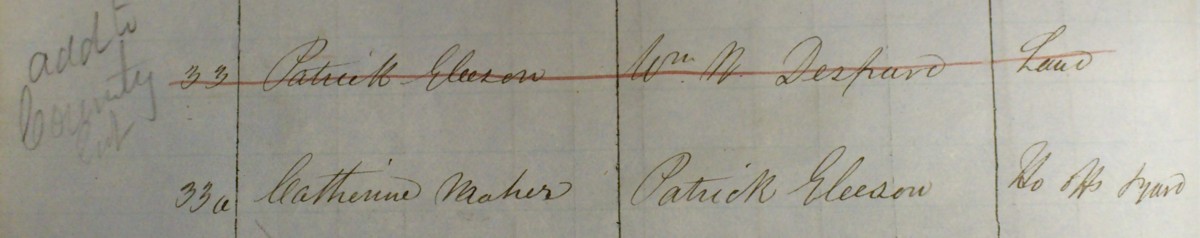 add to
County
list
33 Patrick Gleeson Wm. N. Despard Land
33a Catherine Maher Patrick Gleeson Ho offs & yard